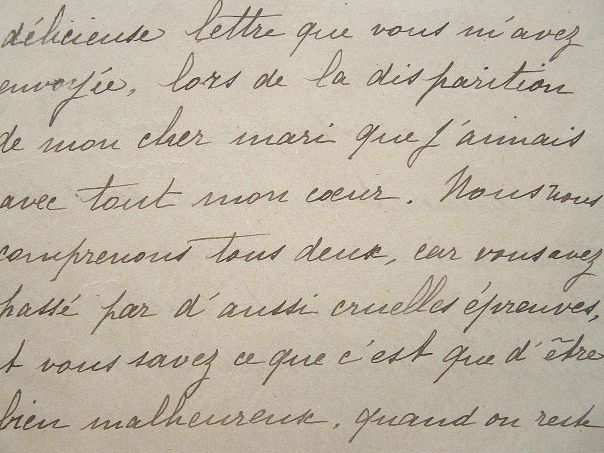 délicieuse lettre que vous m'avez
envoyée, lors de la disparition
de mon cher mari que j'aimais
avec tout mon cœur. Nous nous
comprenons tous deux, car vous avez
passé par d'aussi cruelles épreuves,
et vous savez ce que c'est que d'être
bien malheureux, quand on reste